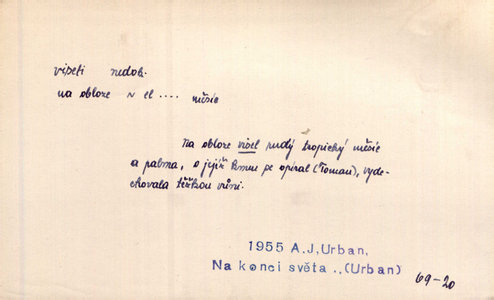 viseti nedok.
na obloze ~ el .... měsíc
Na obloze visel rudý tropický měsíc
a palma, o jejíž kmen se opíral (Toman), vyde-
chovala těžkou vůni.
1955 A.J,Urban,
Na konci světa .,(Urban)
69-20